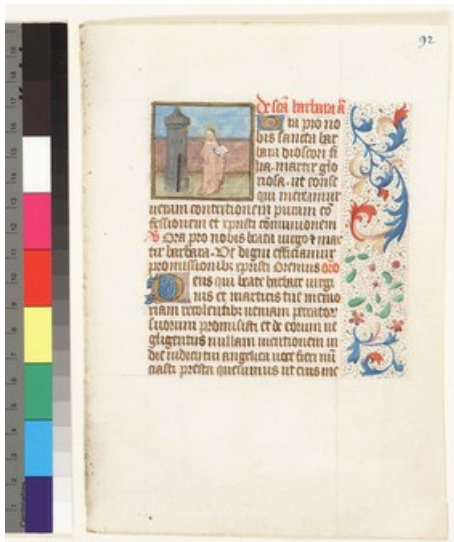 92
De scā barbara ā
Ora pro no
bis sancta bar
bara dioscori fi
lia martir glo
riosa. ut conse
qui mereamur
ueram contritionem puram cō
fessionem et xpisti cōmunionem
Ora pro nobis beata uirgo & mar
tir barbara. Vt digni efficiamur
promissionibz xpisti Oremus oro
Deus qui beate barbare uirgi
nis et martiris tue memo
riam recolentibz ueniam peccator
suorum promisisti et de eorum ne
gligentiis nullam mentionem in
die iudicii tui angelica uoce fieri nū
ciasti presta quesumus ut eius me